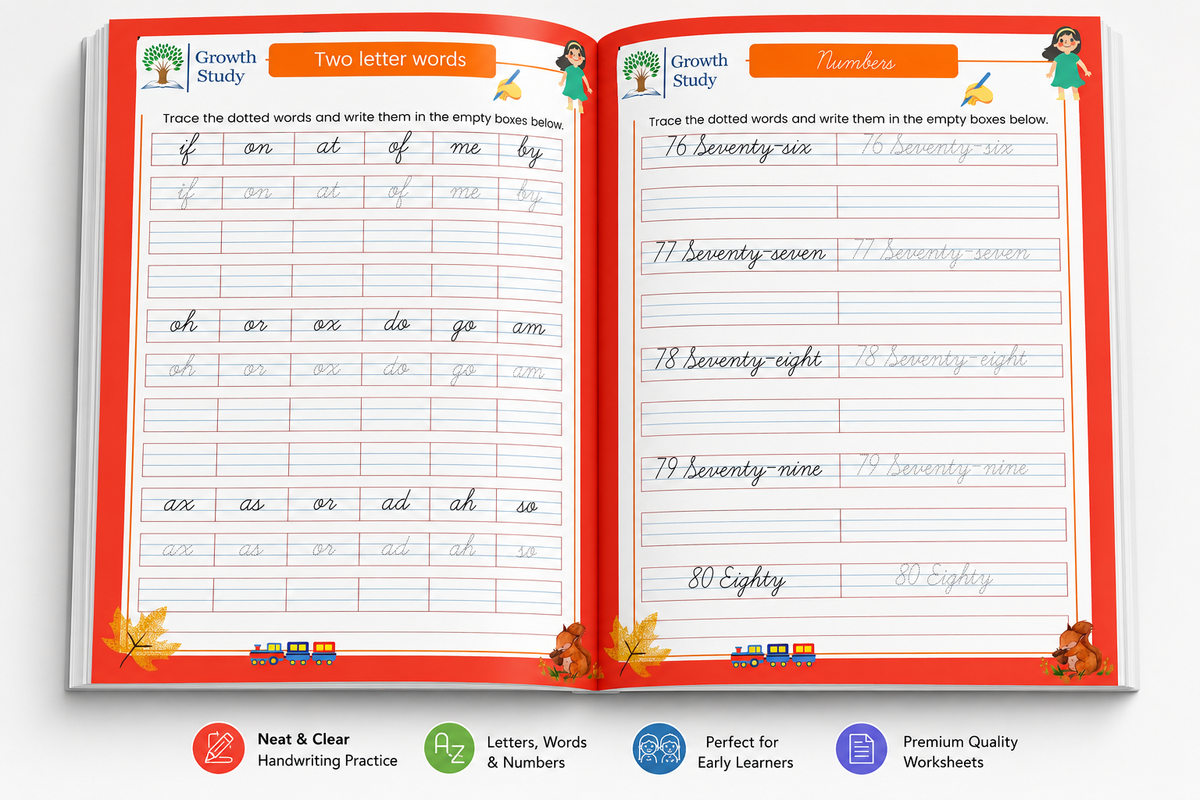 Growth
Study
Two letter words
Trace the dotted words and write them in the empty boxes below.
if on at of me by
if on at of me by
oh or ox do go am
oh or ox do go am
ax as or ad ah so
ax as or ad ah so
Growth
Study
Numbers
Trace the dotted words and write them in the empty boxes below.
76 Seventy-six 76 Seventy-six
77 Seventy-seven 77 Seventy-seven
78 Seventy-eight 78 Seventy-eight
79 Seventy-nine 79 Seventy-nine
80 Eighty 80 Eighty
Neat & Clear
Handwriting Practice
AZ
Letters, Words
& Numbers
Perfect for
Early Learners
Premium Quality
Worksheets